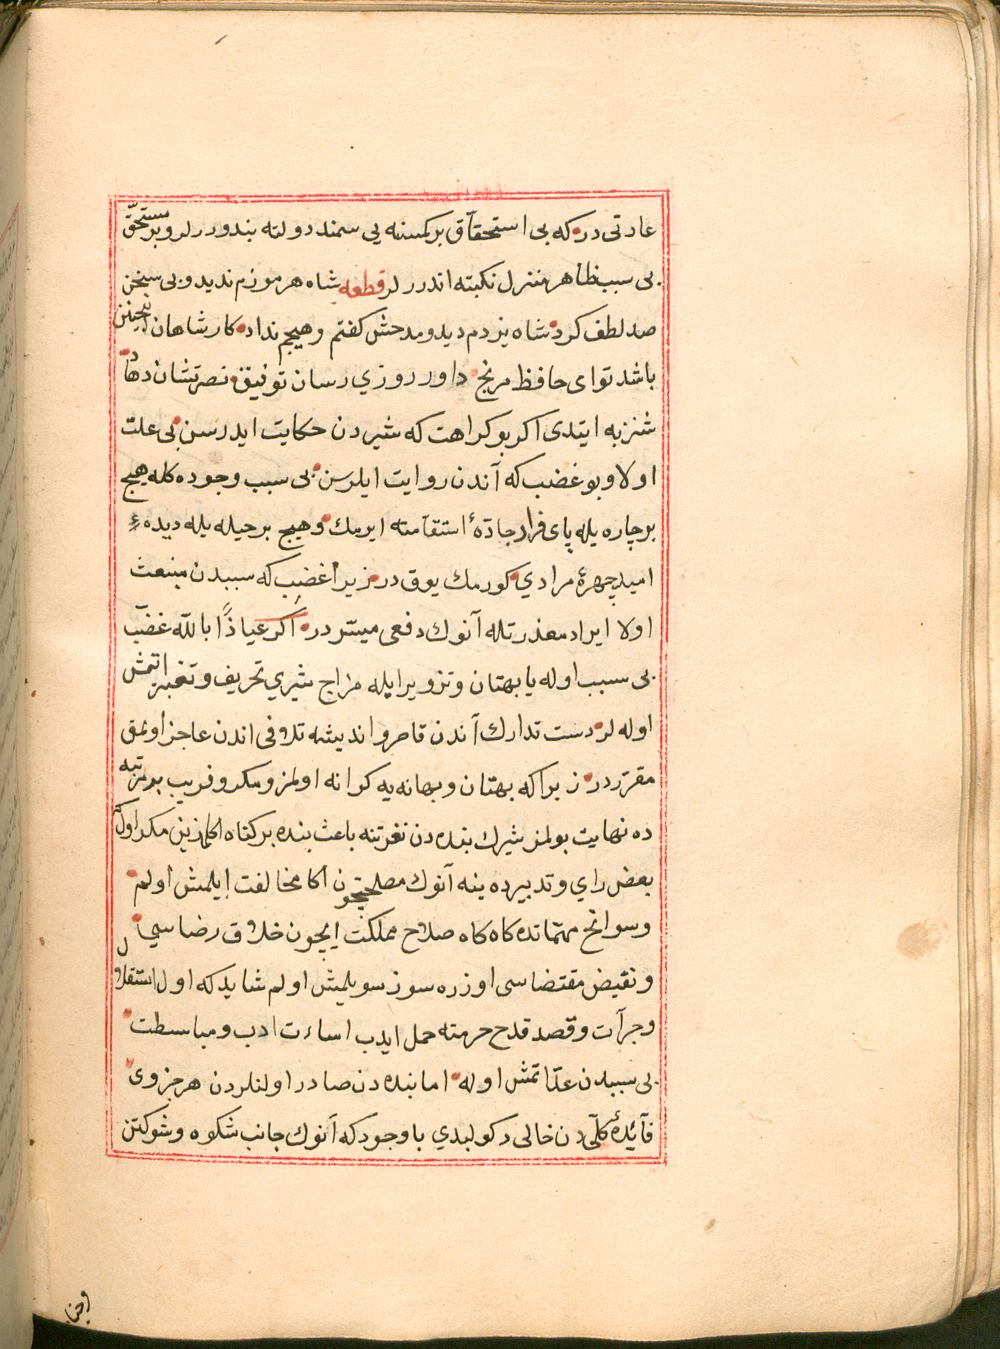 عادتی در که بی استحقاق بر کمسنه یی سمند دولته بندوررلر و بر مستحقّ
بی سبب ظاهر منزل نکبته اندررلر قطعه شاه هرموزم ندید و بی سخن
صد لطف کرد شاه یزدم دید و مدحش کفتم و هیچم نداد کار شاهان اینچنین
باشد تو ای حافظ مرنج داور روزی رسان توفیق نصرتشان دهاد
شنزبه ایتدی اکر بو کراهت که شیردن حکایت ایدرسن بی علت
اولا و بو غضب که آندن روایت ایلرسن بی سبب وجوده کله هیچ
بر چاره یله پای فرار جادّهٔ استقامته ایرمك و هیچ بر حیله یله دیدهٔ
امید چهرهٔ مرادی کورمك یوق در زیرا غضب که سببدن منبعث
اولا ایراد معذرتله آنوك دفعی میسّر در اکر عیاذًا بالله غضب
بی سبب اوله یا بهتان و تزویرایله مزاج شیری تحریف و تغییر اتمش
اوله لر دست تدارك آندن قاصر و اندیشه تلافی اندن عاجز اولمق
مقرّردر زیرا که بهتان و بهانه یه کرانه اولمز و مکر و فریب بو مرتبه
ده نهایت بولمز شیرك بنده دن نفرتنه باعث بنده بر کناه اکلمازین مکر اولکه
بعض رای و تدبیرده ینه آنوك مصلحتیچون اکا مخالفت ایلمش اولم
و سوانح مهمّاتده کاه کاه صلاح مملکت ایچون خلاف رضاسی
و نقیض مقتضاسی اوزره سوز سویلمش اولم شاید که اول استقلال
و جرآت و قصد قدح حرمته حمل ایدب اساءت ادب و مباسطت
بی سببدن عدّ اتمش اوله اما بنده دن صادر اولنلردن هر جزوی
فآئدهٔ کلّی دن خالی دکولیدی با وجود که آنوك جانب شکوه و شوکتن